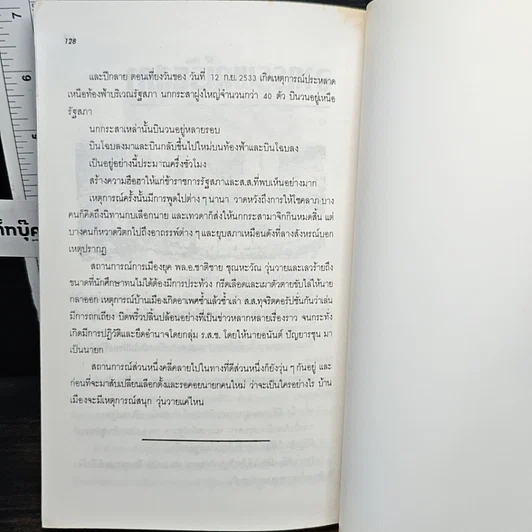 128
และปีกลาย ตอนเที่ยงวันของ วันที่ 12 ก.ย. 2533 เกิดเหตุการณ์ประหลาด
เหนือท้องฟ้าบริเวณรัฐสภา นกกระสาฝูงใหญ่จำนวนกว่า 40 ตัว บินวนอยู่เหนือ
รัฐสภา
นกกระสาเหล่านั้นบินวนอยู่หลายรอบ
บินโฉบลงมาและบินกลับขึ้นไปใหม่บนท้องฟ้าและบินโฉบลง
เป็นอยู่อย่างนี้ประมาณครึ่งชั่วโมง
สร้างความฮือฮาให้แก่ข้าราชการรัฐสภาและส.ส.ที่พบเห็นอย่างมาก
เหตุการณ์ครั้งนั้นมีการพูดไปต่าง ๆ นานา วาดหวังถึงการให้โชคลาภ บาง
คนก็คิดถึงนิทานกบเลือกนาย และเทวดาก็ส่งให้นกกระสามาจิกกินหมดสิ้น แต่
บางคนก็หวาดวิตกไปถึงอาถรรพ์ต่าง ๆ และยุบสภาเหมือนดังที่ลางสังหรณ์บอก
เหตุปรากฏ
สถานการณ์การเมืองยุค พล.อ.ชาติชาย ชุณหะวัณ วุ่นวายและเลวร้ายถึง
ขนาดที่นักศึกษาทนไม่ได้ต้องมีการประท้วง กรีดเลือดและเผาตัวตายขับไล่ให้นาย
กลาออก เหตุการณ์บ้านเมืองเกิดอาเพศซ้ำแล้วซ้ำเล่า ส.ส.ทุจริตคอรัปชั่นกันว่าเล่น
มีการถกเถียง บิดพริ้วปลิ้นปล้อนอย่างที่เป็นข่าวหลากหลายเรื่องราว จนกระทั่ง
เกิดมีการปฏิวัติและยึดอำนาจโดยกลุ่ม ร.ส.ช. โดยให้นายอนันต์ ปัญยารชุน มา
เป็นนายก
สถานการณ์ส่วนหนึ่งคลี่คลายไปในทางที่ดีส่วนหนึ่งก็ยังวุ่น ๆ กันอยู่ และ
ก่อนที่จะมาสับเปลี่ยนเลือกตั้งและรอคอยนายกคนใหม่ ว่าจะเป็นใครอย่างไร บ้าน
เมืองจะมีเหตุการณ์สนุก วุ่นวายแค่ไหน